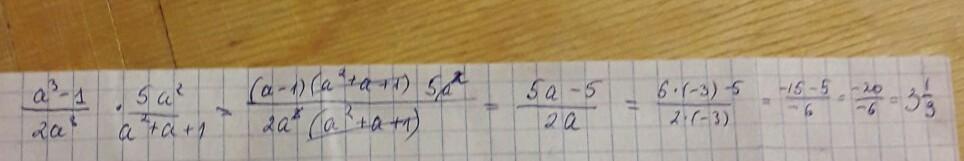 \frac{a^3-1}{2a^3} \cdot \frac{5a^2}{a^2+a+1} = \frac{(a-1)(a^2+a+1) 5a^2}{2a^3(a^2+a+1)} = \frac{5a-5}{2a} = \frac{5 \cdot (-3)-5}{2 \cdot (-3)} = \frac{-15-5}{-6} = \frac{-20}{-6} = 3\frac{1}{3}